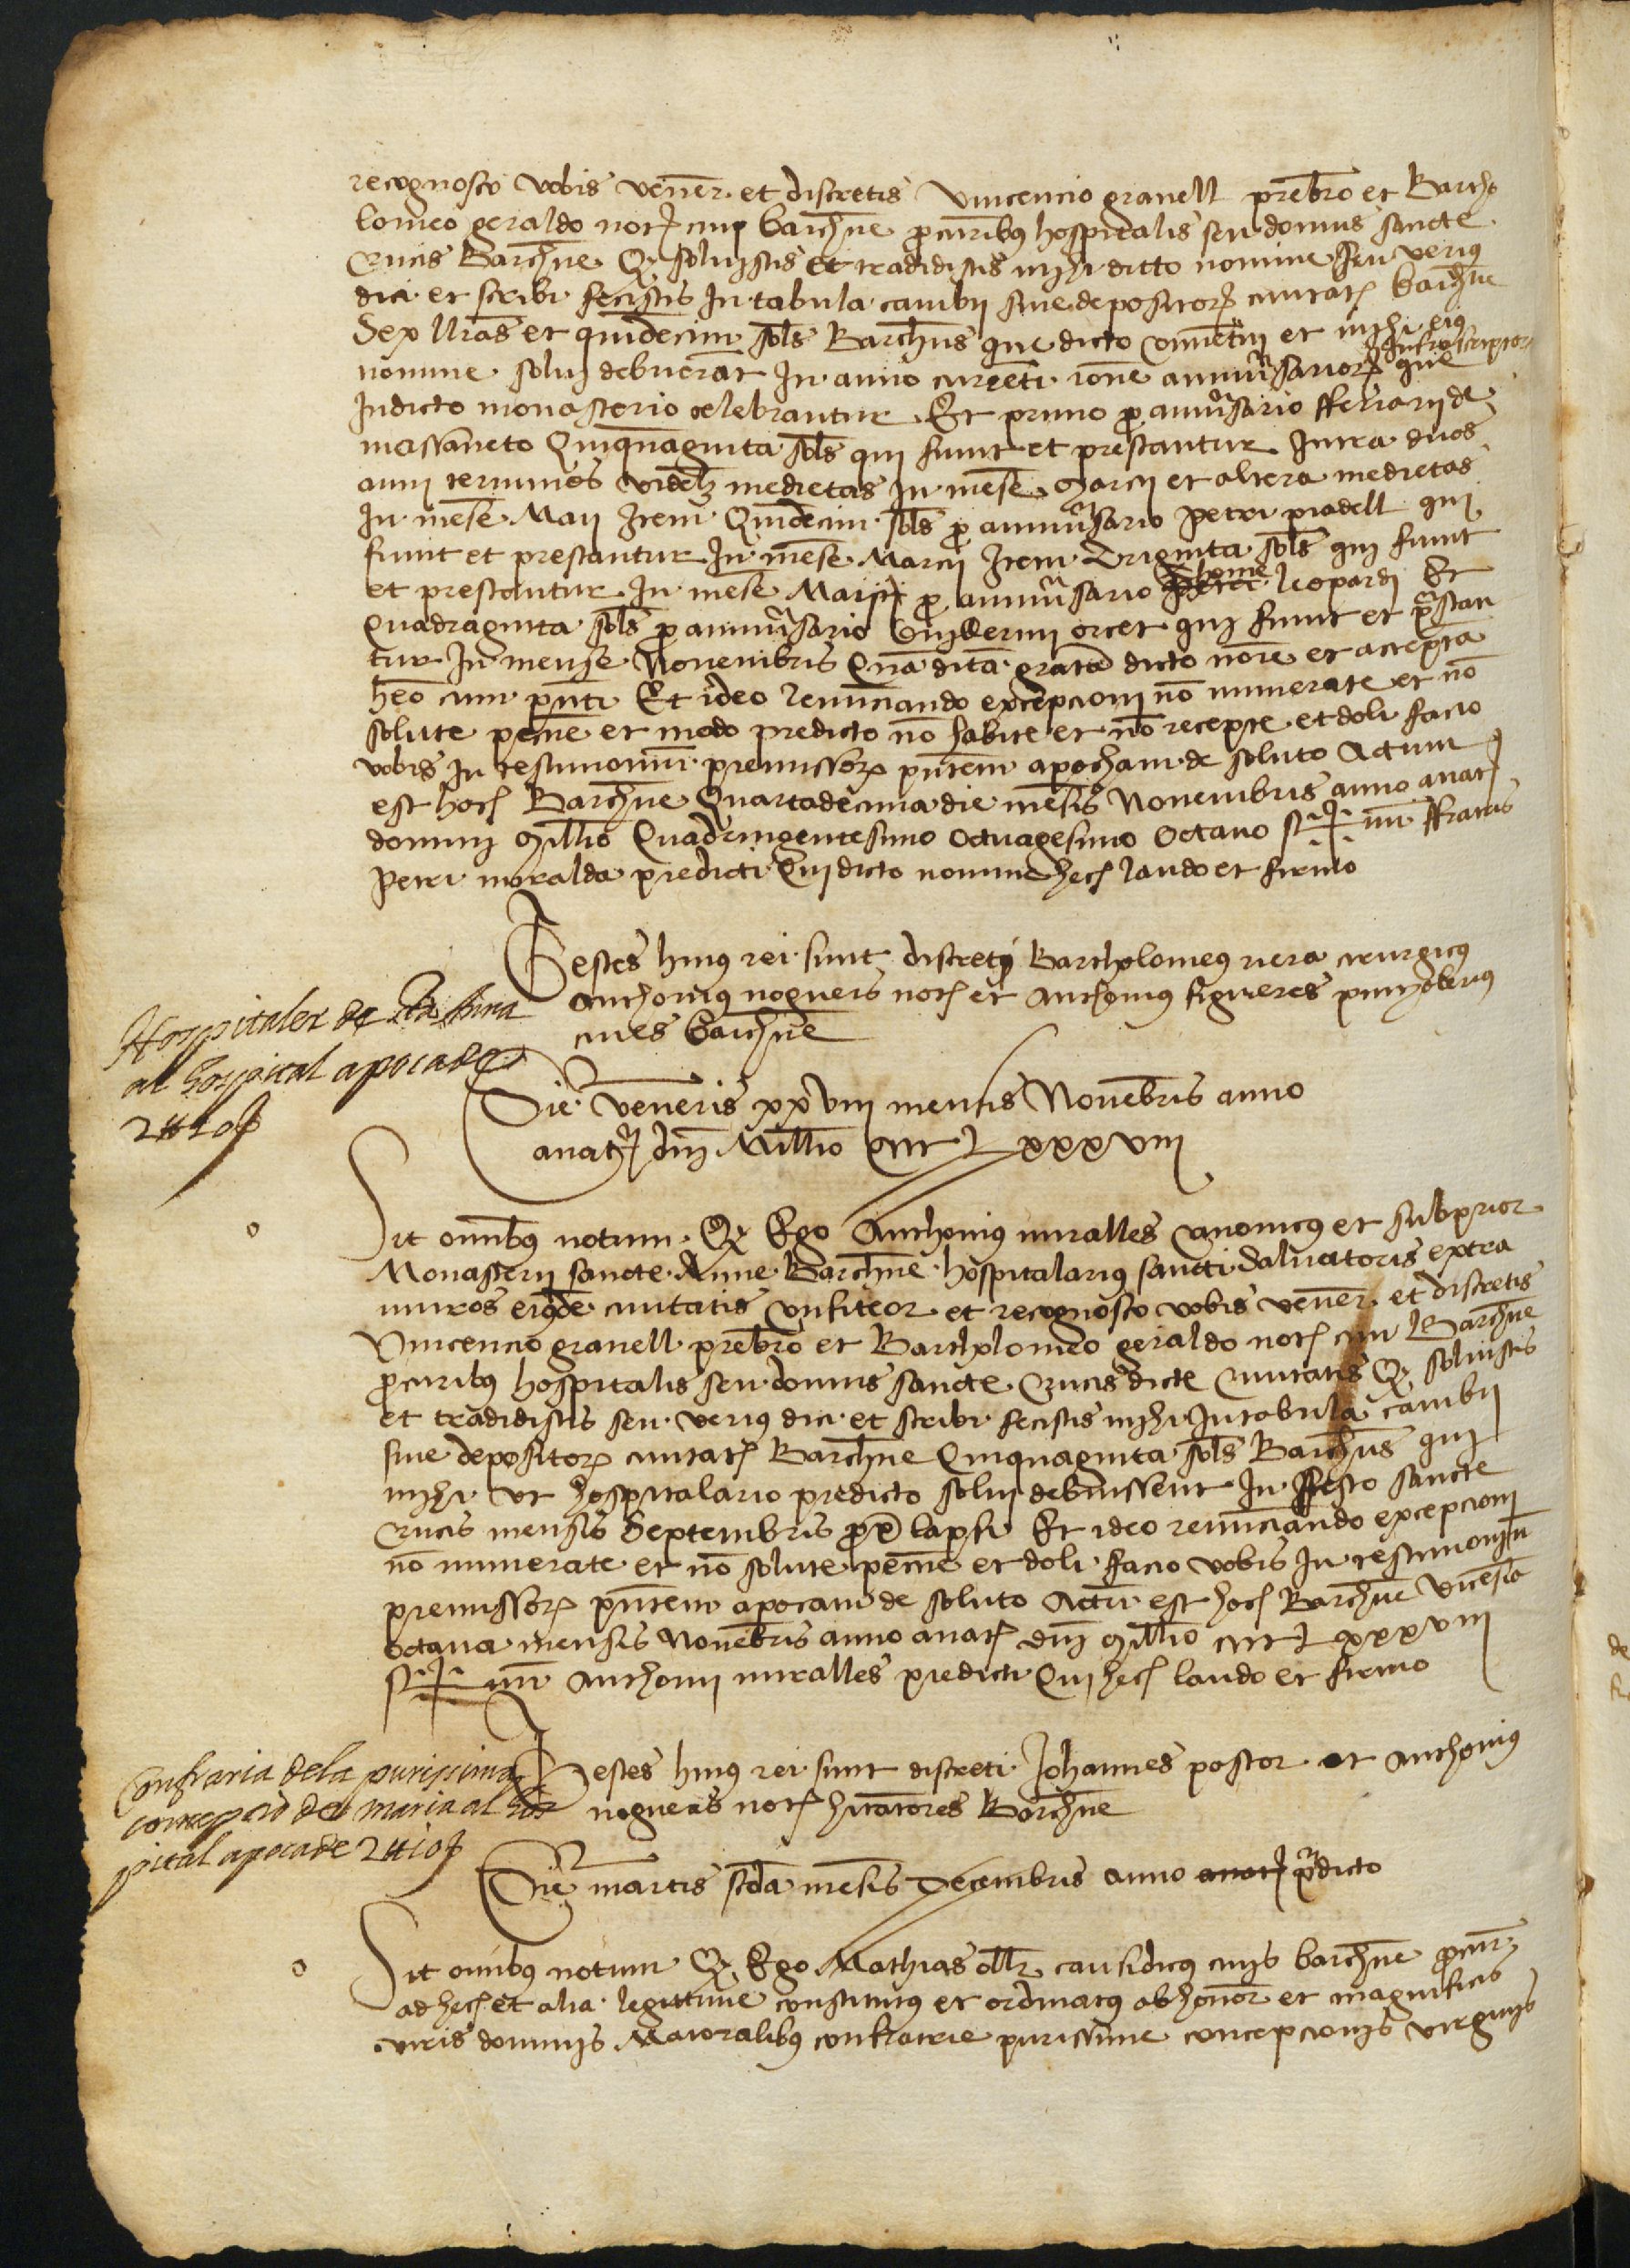 recognosco vobis vener. et discretis Vincencio granell prebro et Bartho
lomeo geraldo not. civi barchne procuribus hospitalis seu domus sancte
Crucis Barchne Q. solvistis et tradidistis michi dicto nomine seu verius
dici et scribi fecistis In tabula cambii sive depositor. civitat. barchne
Sex llras et quindecim sols Barchns que dicto conventui et michi eius
nomine solvi debuerat In anno currenti rone anniversarior. Infrascriptor. que
In dicto monasterio celebrantur Et primo pro anniversario fferrarii de
massaneto Quinquaginta sols qui fiunt et prestantur Intra duos
anni terminos videlz medietas In mense Marcii et altera medietas
In mense Maii Item Quindecim sols pro anniversario Petri pradell qui
fiunt et prestantur In mense Marcii Item Triginta sols qui fiunt
et prestantur In mense Maii pro anniversario Thome leopardi Et
Quadraginta sols pro anniversario Guillermi orcet qui fiunt et prestan
tur In mense Novembris Qua dita grata dicto noie et accepta
heo cum pnti Et ideo renunciando excepcioni no numerate et no
solute pecunie et modo predicto no habite et no recepte et doli facio
vobis In testimonium premissor. pntem apocham de soluto Actum
est hoc Barchne Quartadecima die mensis Novembris anno a nat.
domini Millio Quadringentesimo octuagesimo octavo Sig+num ffratris
Petri moralda predicti Qui dicto nomine hec laudo et firmo
Testes huius rei sunt discreti Bartholomeus riera cirurgicus
Anthonius noguers not. et Anthonius figueres
cives barchne
Hospitaler de Sta Anna
al hospital apoca de
2 ₶ 10 s
Die veneris xxviii mensis Novebris anno
a nat. dni Millio cccc Lxxxviii
Sit omnibus notum Q. Ego Anthonius miralles canonicus et subprior
Monasterii sancte Anne Barchne hospitalarius sancti Salvatoris extra
muros eiusde civitatis confiteor et recognosco vobis vener. et discretis
Vincencio granell prebro et Bartholomeo geraldo not. civi Barchne
procuribus hospitalis seu domus sancte Crucis dicte Civitatis Q. solvistis
et tradidistis seu verius dici et scribi fecistis michi In tabula cambii
sive depositor. civitat. Barchne Quinquaginta sols Barchns qui
michi ut hospitalario predicto solvi debuissent In ffesto sancte
Crucis mensis Septembris prox lapsi Et ideo renunciando excepcioni
no numerate et no solute pecunie et doli facio vobis In testimonium
premissor. pntem apocam de soluto Actu est hoc Barchne Vicesia
octava mensis Novebris anno a nat. dni Millio cccc Lxxxviii
Sig+num Anthonii miralles predicti Qui hec laudo et firmo
Testes huius rei sunt discreti Johannes pastor et Anthonius
noguers not. hitatores Barchne
Confraria dela purissima
concepcio de maria al hos
pital apoca de 2 ₶ 10 s
Die martis scda mensis Decembris anno a nat. predicto
Sit omibus notum Q. Ego Mathias ollr causidicus civis barchne procur.
ad hec et alia legittime constitutus et ordinatus ab honor. et magnificis
viris dominis Maioralibus confratrie purissime concepcionis virginis